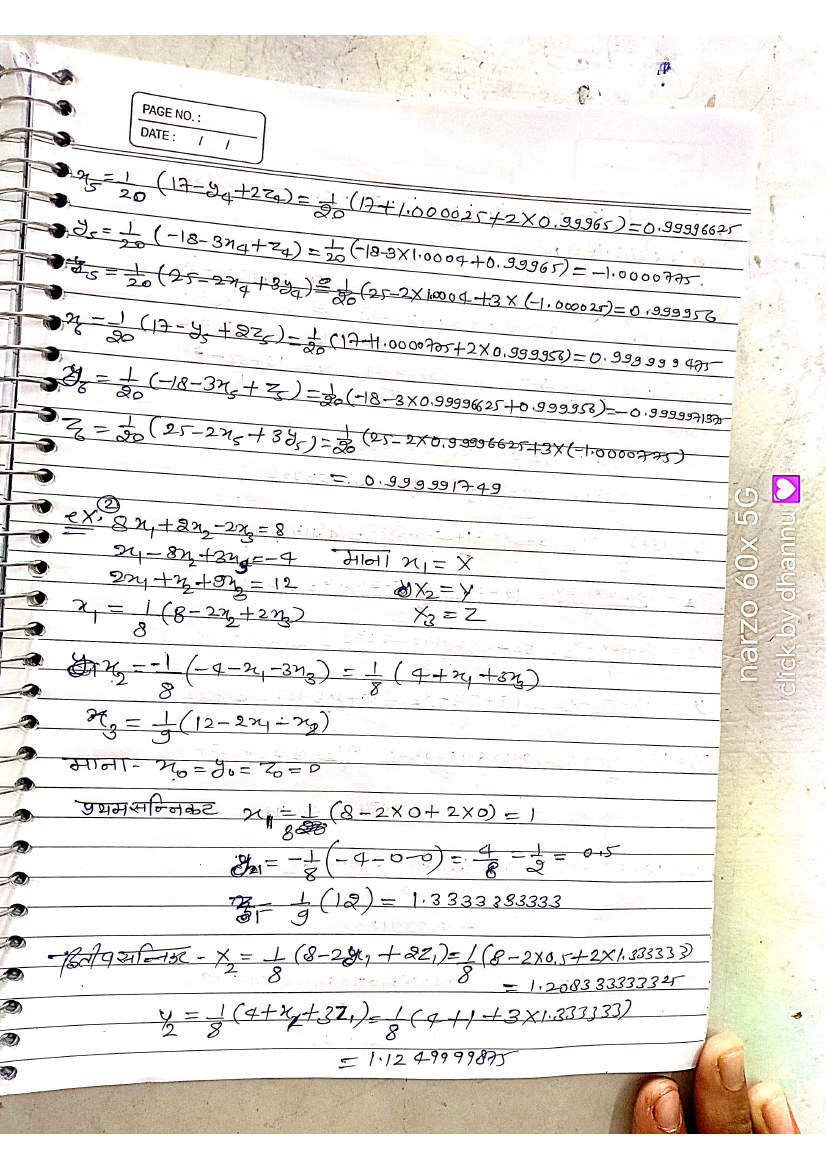 PAGE NO. :
DATE : / /
x₅ = 1/20 (17-y₄+2z₄) = 1/20 (17+1.000025+2×0.99965) = 0.99996625
y₅ = 1/20 (-18-3x₄+z₄) = 1/20 (-18-3×1.0004+0.99965) = -1.0000775.
z₅ = 1/20 (25-2x₄+3y₄) = 1/20 (25-2×1.0004+3×(-1.000025) = 0.999956
x₆ = 1/20 (17-y₅+2z₅) = 1/20 (17+1.0000775+2×0.999956) = 0.999999475
y₆ = 1/20 (-18-3x₅+z₅) = 1/20 (-18-3×0.99996625+0.999956) = -0.9999971375
z₆ = 1/20 (25-2x₅+3y₅) = 1/20 (25-2×0.99996625+3×(-1.0000775)
= 0.999991749
ex. ② 8x₁+2x₂-2x₃ = 8
x₁-8x₂+3x₃ = -4 माना x₁ = X
2x₁+x₂+9x₃ = 12 X₂ = Y
x₁ = 1/8 (8-2x₂+2x₃) X₃ = Z
x₂ = -1/8 (-4-x₁-3x₃) = 1/8 (4+x₁+3x₃)
x₃ = 1/9 (12-2x₁-x₂)
माना - x₀ = y₀ = z₀ = 0
प्रथम सन्निकट x₁ = 1/8 (8-2×0+2×0) = 1
y₁ = -1/8 (-4-0-0) = 4/8 = 1/2 = 0.5
z₁ = 1/9 (12) = 1.3333333333
द्वितीय सन्निकट - X₂ = 1/8 (8-2y₁+2z₁) = 1/8 (8-2×0.5+2×1.333333)
= 1.208333333325
y₂ = 1/8 (4+x₁+3z₁) = 1/8 (4+1+3×1.333333)
= 1.1249999875
narzo 60x 5G
click by dhannu